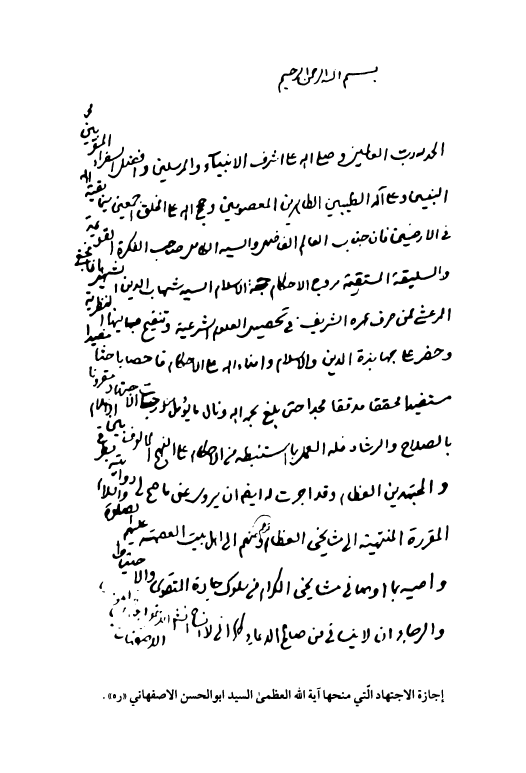 بسم الله الرحمن الرحيم
الحمد لله رب العالمين وصلى الله على اشرف الانبياء والمرسلين وافضل السفراء المقربين
محمد وعلى آله الطيبين الطاهرين المعصومين وحجج الله على الخلق اجمعين سيما بقية الله
في الارضين فان جناب العالم الفاضل والسيد الكامل صاحب الفكرة القويمة
والسليقة المستقيمة مروج الاحكام حجة الاسلام السيد شهاب الدين الشهير باقا نجفي
المرعشي ممن صرف عمره الشريف في تحصيل العلوم الشرعية وتنقيح مبانيها النظرية
وحضر على جهابذة الدين والاسلام وامناء الله على الاحكام فاحصا باحثا مستفيدا
مستفيضا محققا مدققا مجدا حتى بلغ بحمد الله ونال ما يؤمل من درجات الاجتهاد مقرونا
بالصلاح والرشاد فله العمل بما استنبطه من الاحكام على النهج المألوف بين الاعلام
والمجتهدين العظام وقد اجزت له ايضا ان يروي عني ما صح لي روايته
المقررة المنتهية الى مشايخي العظام ومنهم الى اهل بيت العصمة عليهم الصلوة والسلام
واوصيه بما اوصاني مشايخي الكرام في سلوك جادة التقوى والاحتياط
والرجاء ان لا ينساني من صالح الدعاء كما اني لا انساه انشاء الله
إجازة الاجتهاد الّتي منحها آية الله العظمىٰ السيد ابوالحسن الاصفهاني «ره».